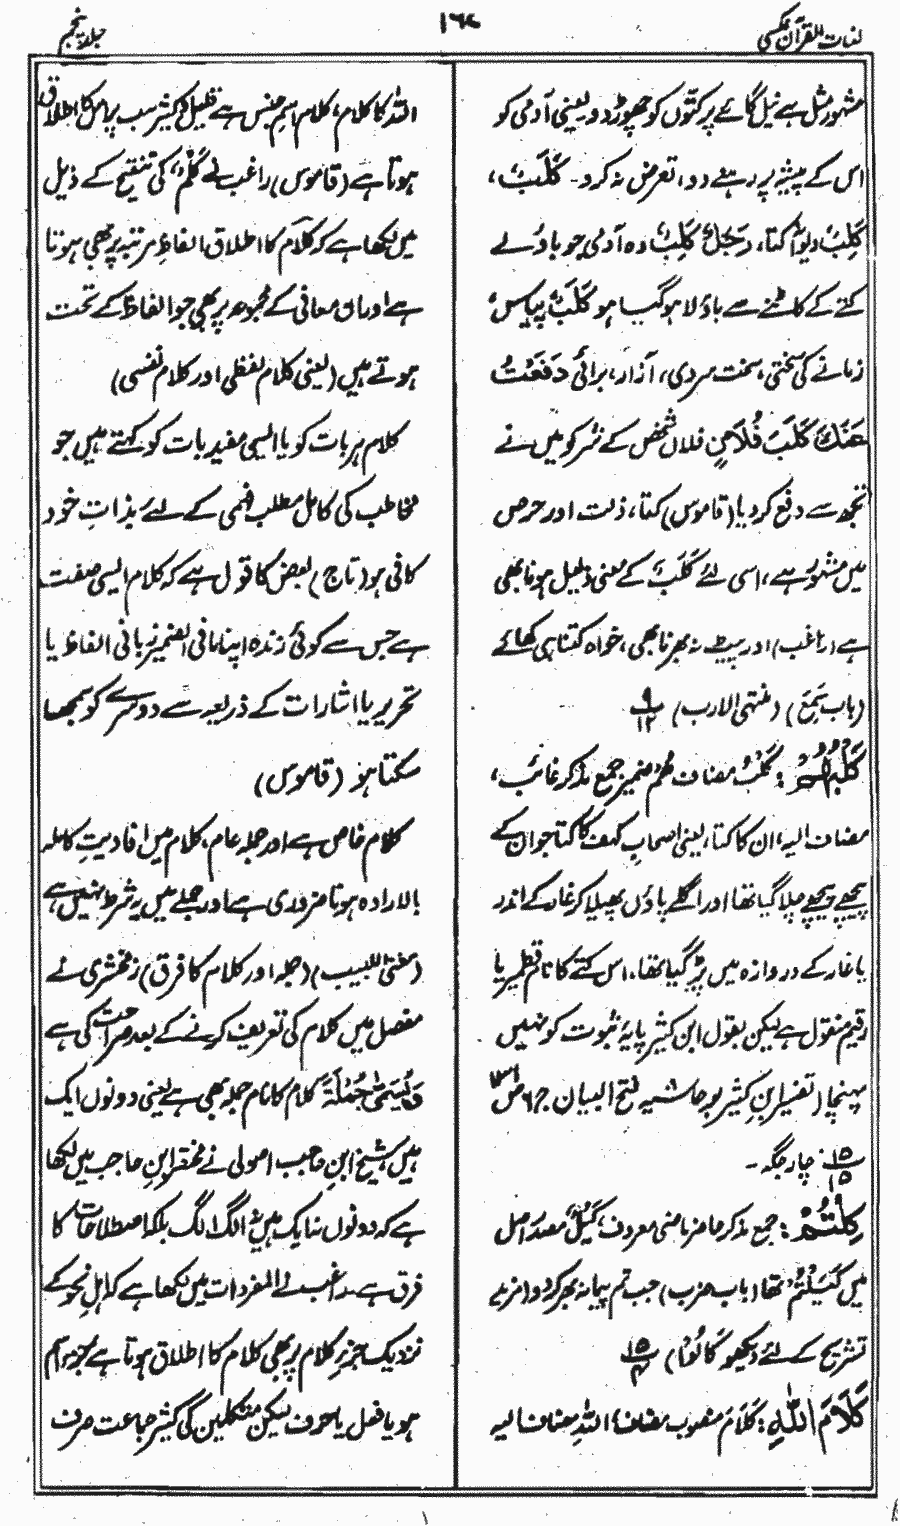 لغات القرآن عکسی
۱۶۷
جلد پنجم
مشہور مثل ہے نیل گائے پر کتوں کو چھوڑ دو یعنی آدمی کو
اس کے پیشہ پر رہنے دو، تعرض نہ کرو۔ کَلَبٌ،
کَلِبٌ دیوانہ کتا، رَجُلٌ کَلِبٌ وہ آدمی جو باؤلے
کتے کے کاٹنے سے باؤلا ہو گیا ہو کَلَبٌ پیاس،
زمانے کی سختی، سخت سردی، آزار، برائی دَفَعْتُ
عَنْکَ کَلَبَ فُلَانٍ فلاں شخص کے شر کو میں نے
تجھ سے دفع کر دیا (قاموس) کتا، ذلت اور حرص
میں مشہور ہے، اسی لئے کَلَبٌ کے معنی ذلیل ہونا بھی
ہے (راغب) اور پیٹ نہ بھرنا بھی، خواہ کتنا ہی کھائے
(باب سَمِعَ) (منتہی الارب) ۹/۱۲
کَلْبُهُمْ : کَلْبٌ مضاف هُمْ ضمیر جمع مذکر غائب،
مضاف الیہ، ان کا کتا، یعنی اصحابِ کہف کا کتا جو ان کے
پیچھے پیچھے چلا گیا تھا اور اگلے پاؤں پھیلا کر غار کے اندر
یا غار کے دروازہ میں پڑ گیا تھا، اس کتے کا نام قطمیر یا
رقیم منقول ہے لیکن بقول ابن کثیر پایۂ ثبوت کو نہیں
پہنچا (تفسیر ابنِ کثیر بر حاشیہ فتح البیان ج ۶ ص
۱۵/۱۵ چار جگہ ۔
کِلْتُمْ : جمع مذکر حاضر ماضی معروف، کَیْلٌ مصدر اصل
میں کَیَلْتُمْ تھا (باب ضرب) جب تم پیمانہ بھر کر دو (مزید
تشریح کے لئے دیکھو کَالُوْا) ۱۵/۴
کَلَامَ اللّٰهِ : کَلَامَ منصوب مضاف، اللّٰہِ مضاف الیہ
اللّٰہ کا کلام، کلام اسم جنس ہے قلیل و کثیر سب پر اس کا اطلاق
ہوتا ہے (قاموس) راغب نے کَلْمٌ کی تنقیح کے ذیل
میں لکھا ہے کہ کلام کا اطلاق الفاظِ مرتبہ پر بھی ہوتا
ہے اور ان معانی کے مجموعہ پر بھی جو الفاظ کے تحت
ہوتے ہیں (یعنی کلام لفظی اور کلام نفسی)
کلام ہر بات کو یا ایسی مفید بات کو کہتے ہیں جو
مخاطب کی کامل مطلب فہمی کے لئے بذاتِ خود
کافی ہو (تاج) بعض کا قول ہے کہ کلام ایسی صفت
ہے جس سے کوئی زندہ اپنا مافی الضمیر زبانی الفاظ یا
تحریر یا اشارات کے ذریعہ سے دوسرے کو سمجھا
سکتا ہو (قاموس)
کلام خاص ہے اور جملہ عام، کلام میں افادیتِ کاملہ
بالارادہ ہونا ضروری ہے اور جملے میں یہ شرط نہیں ہے
(مغنی اللبیب) (جملہ اور کلام کا فرق) زمخشری نے
مفصل میں کلام کی تعریف کرنے کے بعد صراحت کی ہے
وَیُسَمّٰی جُمْلَةً کلام کا نام جملہ بھی ہے یعنی دونوں ایک
ہیں شیخ ابن حاجب اصولی نے مختصر ابن حاجب میں لکھا
ہے کہ دونوں نہ ایک ہیں نہ الگ الگ بلکہ اصطلاحات کا
فرق ہے۔ راغب نے المفردات میں لکھا ہے کہ اہلِ نحو کے
نزدیک جزءِ کلام پر بھی کلام کا اطلاق ہوتا ہے جزء اسم
ہو یا فعل یا حرف لیکن متکلمین کی کثیر جماعت صرف